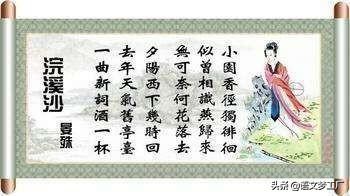 浣溪沙
晏殊
一曲新詞酒一杯
去年天氣舊亭臺
夕陽西下幾時回
無可奈何花落去
似曾相識燕歸來
小園香徑獨徘徊
头条 @语文梦工厂